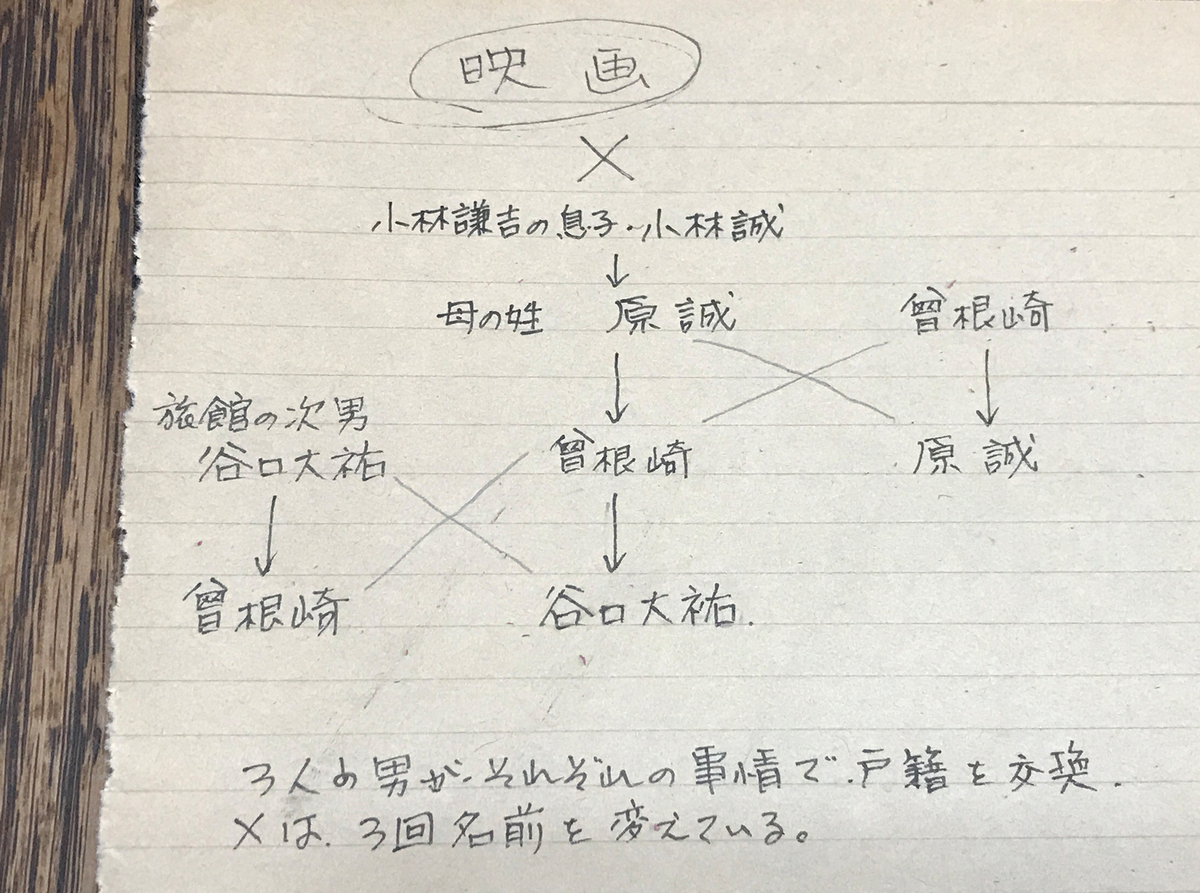 映画
X
小林謙吉の息子・小林誠
↓
母の姓 原誠 曾根崎
↓ ↓
旅館の次男
谷口大祐 曾根崎 原誠
↓ ↓
曾根崎 谷口大祐.
3人の男が、それぞれの事情で、戸籍を交換.
Xは、3回名前を変えている。